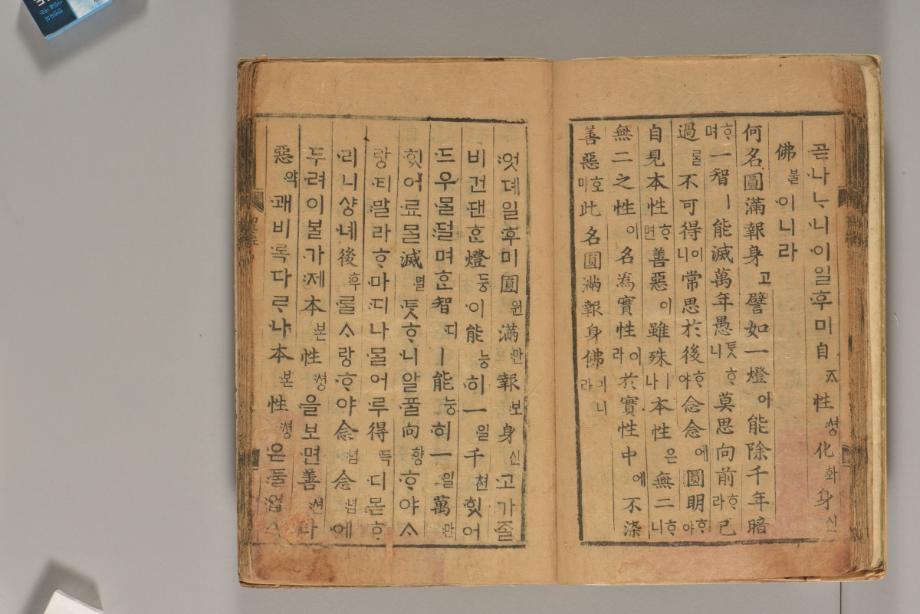 곧나ᄂᆞ니이일후미自ᄌᆞ性셩化화身신
佛불이니라
何名圓滿報身고譬如一燈이能除千年暗
ᄒᆞ며一智ㅣ能滅萬年愚ᄐᆞᆺᄒᆞ니莫思向前ᄒᆞ라已
過ᄅᆞᆯ不可得이니常思於後ᄒᆞ야念念에圓明ᄒᆞ야
自見本性ᄒᆞ면善惡이雖殊ᄒᆞ나本性은無二ᄒᆞ니
無二之性이名為實性이라於實性中에不染
善惡호미此名圓滿報身佛이니라
엇뎨일후미圓원滿만報보身신고가ᄌᆞᆯ
비건댄ᄒᆞᆫ燈등이能능히一일千쳔힛어
드우믈덜며ᄒᆞᆫ智디ㅣ能능히一일萬만
힛어료ᄆᆞᆯ滅멸ᄐᆞᆺᄒᆞ니알ᄑᆞᆯ向향ᄒᆞ야ᄉᆞ
랑티말라ᄒᆞ마디나ᄆᆞᆯ어루得득디몯ᄒᆞ
리니샹녜後후ᄅᆞᆯᄉᆞ랑ᄒᆞ야念념念념에
두려이ᄇᆞᆯ가제本본性셩을보면善션나
惡악괘비록다ᄅᆞ나本본性셩은둘업